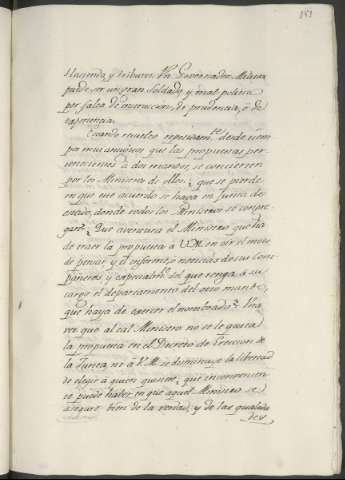 Hacienda, y tributos. Un Governador Militar
puede ser un gran Soldado, y mal politico
por falta de instruccion, de prudencia, o de
experiencia.
Estando resuelto expresam.te desde tiem
po mui antiguo que las propuestas per
tenecientes à dos ramos, se concierten
por los Ministros de ellos; que se pierde
en que este acuerdo se haga en Junta de
estado, donde todos los Ministros se congre
gan? Que aventura el Ministro que ha
de traer la propuesta à V.M. en oir el modo
de pensar, y el informe, o noticias de sus Com
pañeros y especialm.te del que tenga à su
cargo el departamento del otro mando,
que haya de exercer el nombrado? Una
vez que al tal Ministro no se le quita
la propuesta en el Decreto de Ereccion de
la Junta, ni à V.M. se disminuye la libertad
de elegir à quien quiera; que inconveniente
se puede haber en que aquel Ministro se
asegure bien de la verdad, y de las qualida
des